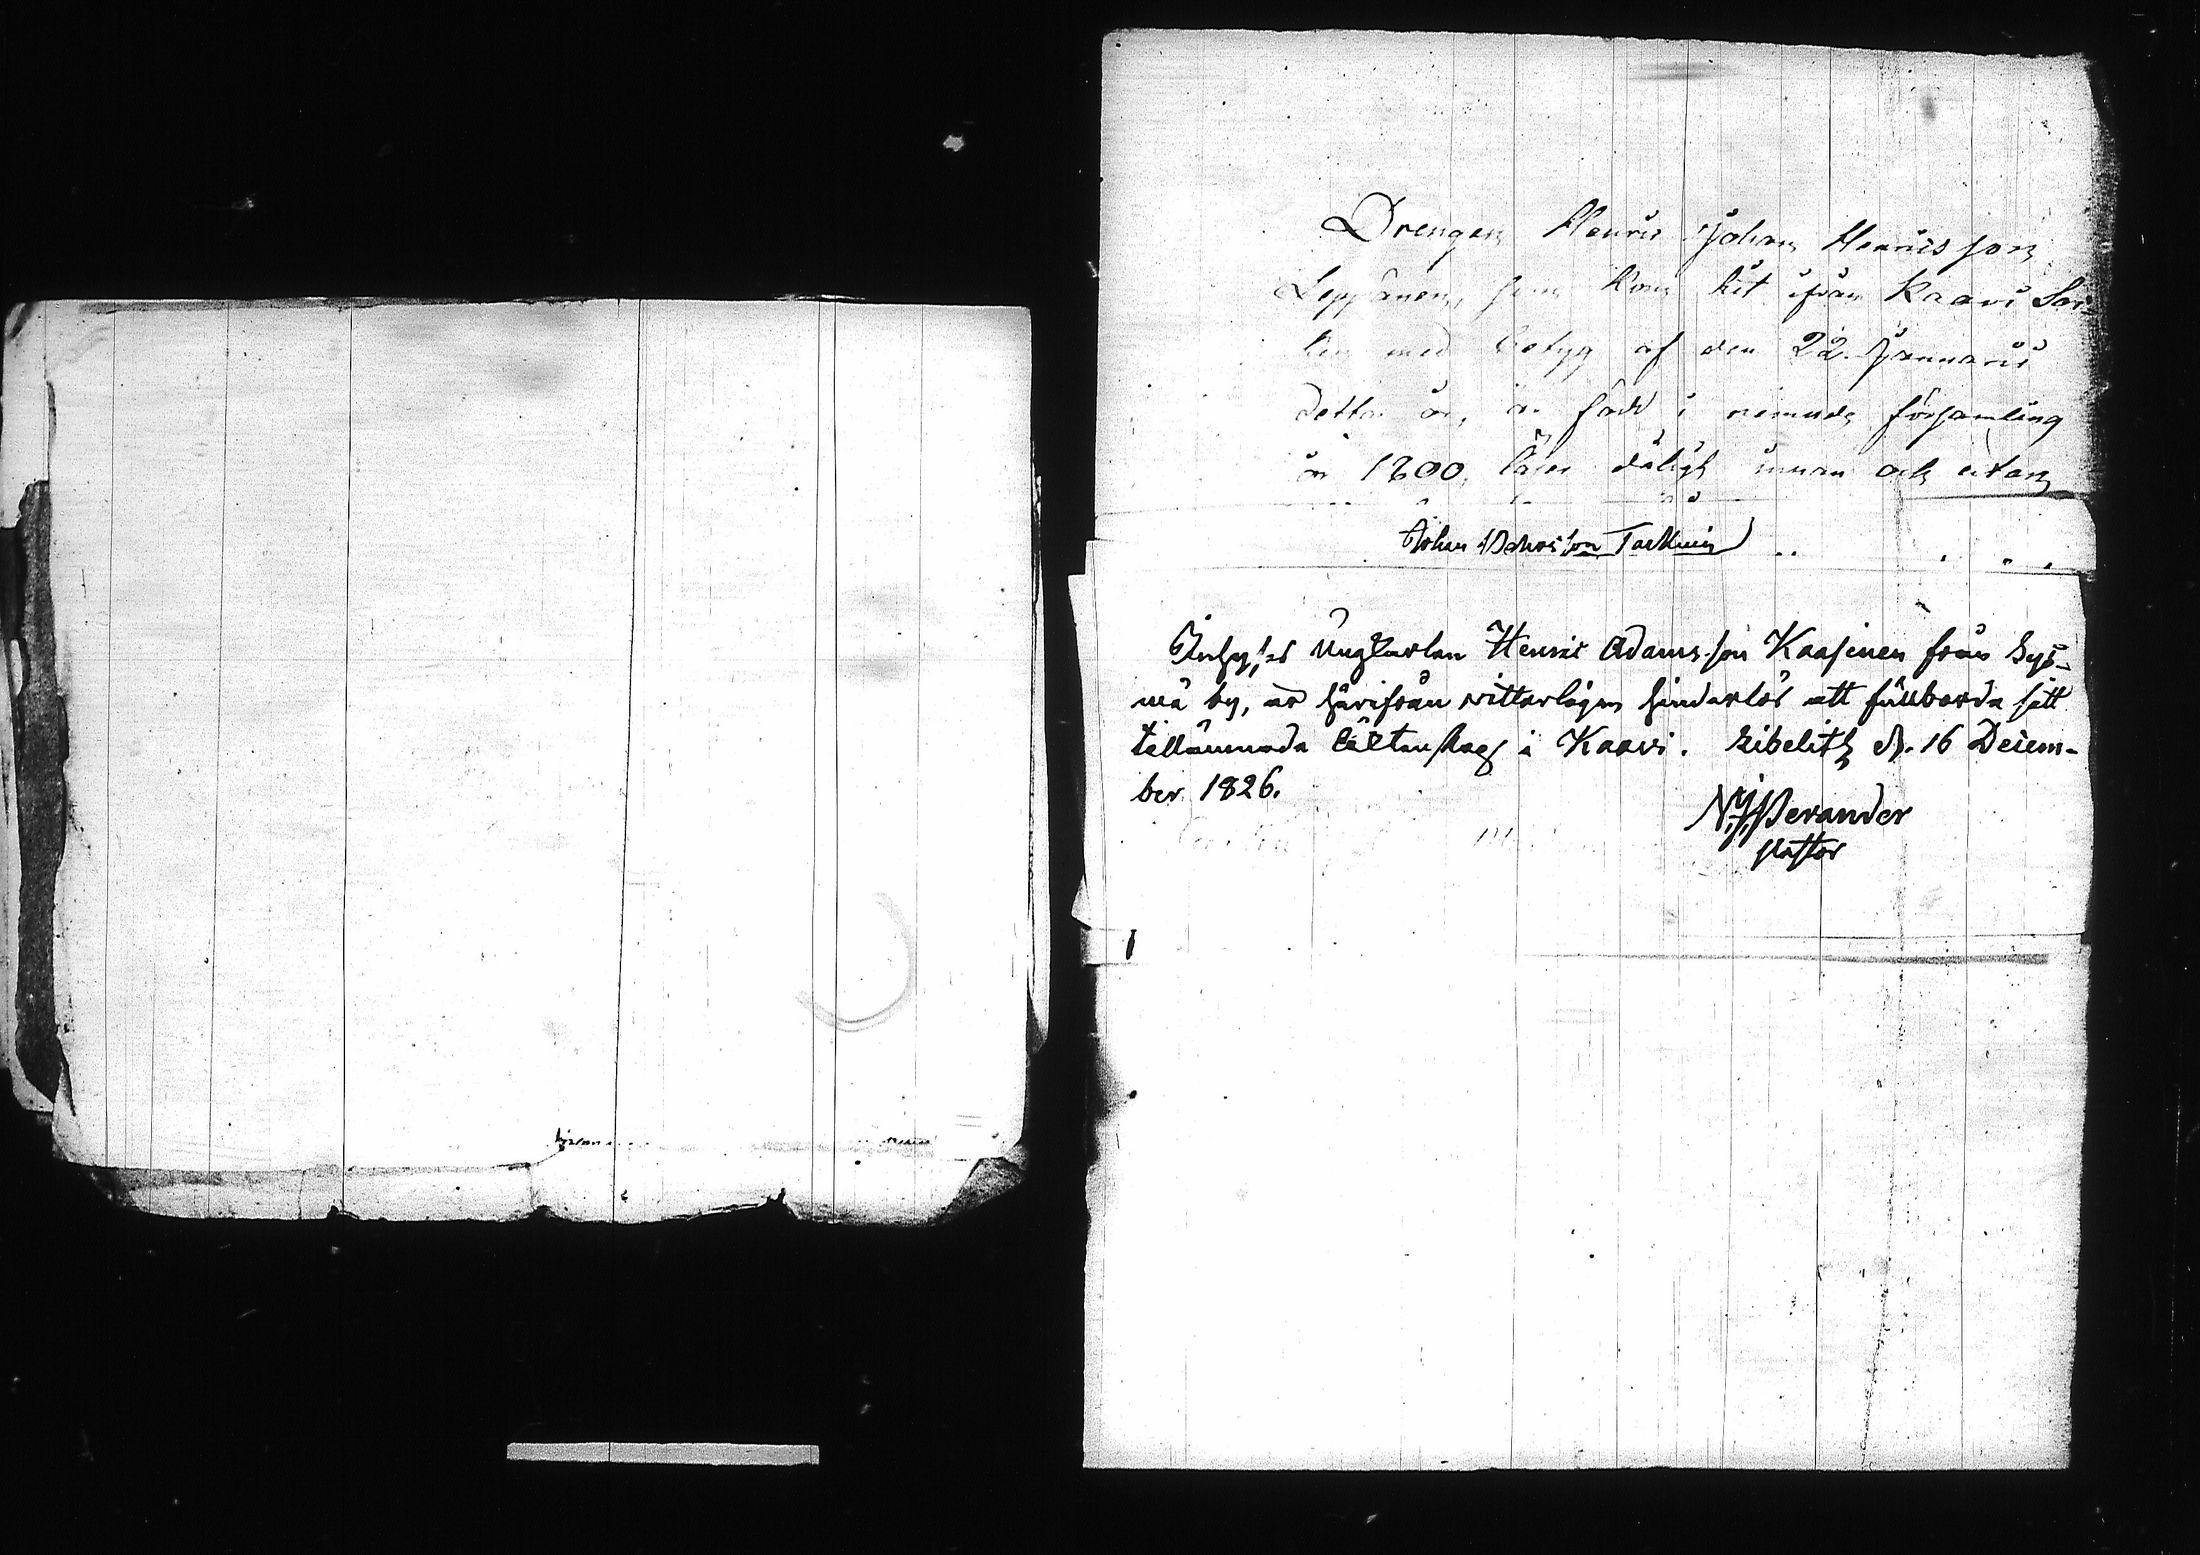 Drengen Henric Johan Henricsson
Leppänen, som kom hit ifrån Kaavi Soc-
ken med betyg af den 22. Januarii
detta år, är född i nemnde församling
år 1800, läser dåligt innan och utan
Johan Son Tarkiain
Inhyses Ungkarlen Henric Adamsson Kaasinen från Sys-
mä by, är härifrån vitterligen hinderlös att fullborda sitt
tillämnade äktenskap i Kaavi. Libelitz d. 16 Decem-
ber 1826.
N. J. Perander
pastor